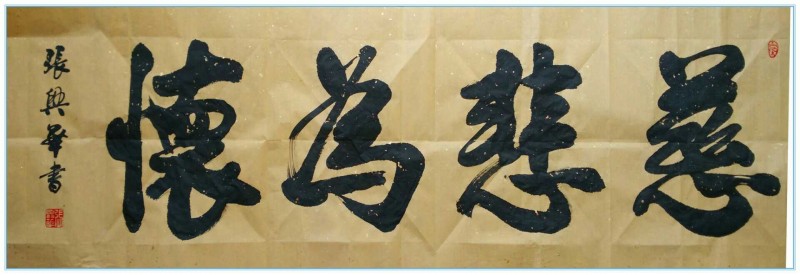 慈悲為懷
張興華書